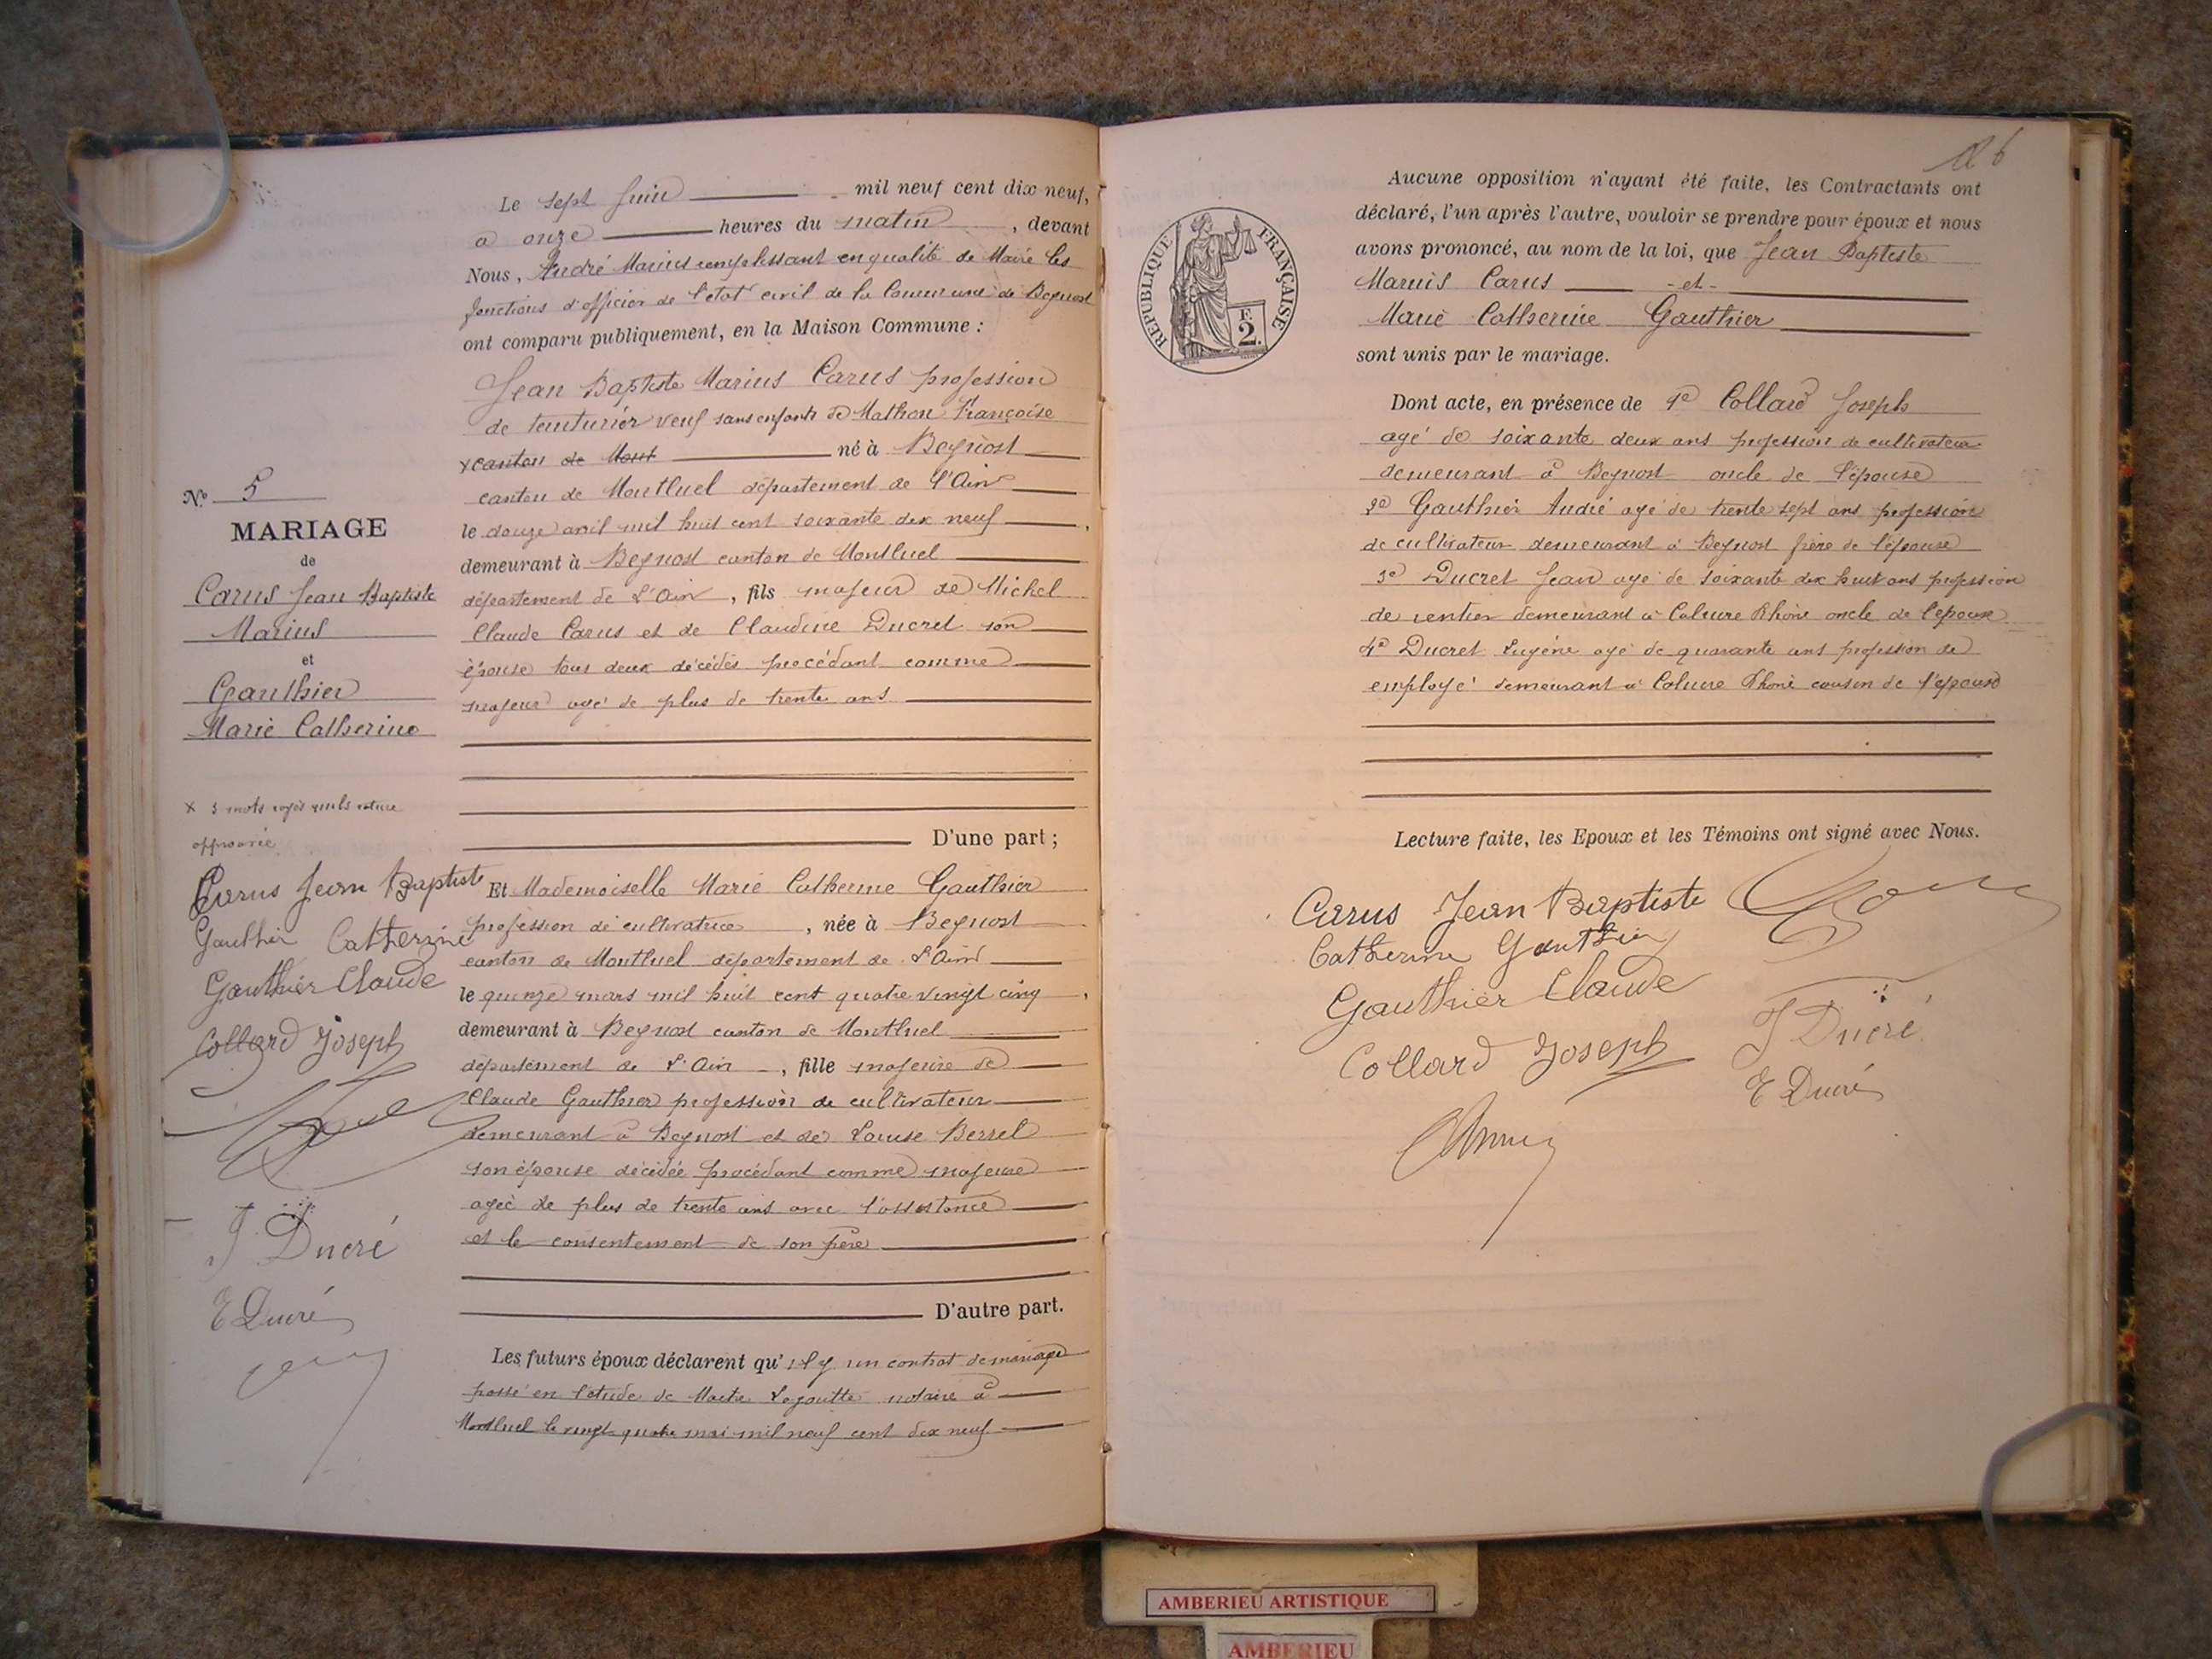 Le sept Juin mil neuf cent dix neuf,
a onze heures du matin, devant
Nous, André Marius remplissant en qualité de Maire les
fonctions d'officier de l'état civil de la Commune de Beynost
ont comparu publiquement, en la Maison Commune :
Jean Baptiste Marius Carus profession
de teinturier veuf sans enfants de Mathon Françoise
x canton de Mont né à Beynost
canton de Montluel département de l'Ain
le douze avril mil huit cent soixante dix neuf,
demeurant à Beynost canton de Montluel
département de l'Ain, fils majeur de Michel
Claude Carus et de Claudine Ducret son
épouse tous deux décédés procédant comme
majeur agé de plus de trente ans
D'une part ;
Et Mademoiselle Marie Catherine Gauthier
profession de cultivatrice, née à Beynost
canton de Montluel département de l'Ain
le quinze mars mil huit cent quatre vingt cinq,
demeurant à Beynost canton de Montluel
département de l'Ain, fille majeure de
Claude Gauthier profession de cultivateur
demeurant à Beynost et de Louise Berrel
son épouse décédée procédant comme majeure
agée de plus de trente ans avec l'assistance
et le consentement de son père
D'autre part.
Les futurs époux déclarent qu'il y un contrat de mariage
passé en l'étude de Maitre Legoutte notaire à
Montluel le vingt quatre mai mil neuf cent dix neuf
No. 5
MARIAGE
de
Carus Jean Baptiste
Marius
et
Gauthier
Marie Catherine
x 3 mots rayés nuls rature
approuvée
Carus Jean Baptiste
Gauthier Catherine
Gauthier Claude
Collard Joseph
J Ducré
E Ducré
6
REPUBLIQUE FRANÇAISE
F.
2.
Aucune opposition n'ayant été faite, les Contractants ont
déclaré, l'un après l'autre, vouloir se prendre pour époux et nous
avons prononcé, au nom de la loi, que Jean Baptiste
Marius Carus - et -
Marie Catherine Gauthier
sont unis par le mariage.
Dont acte, en présence de 1º Collard Joseph
agé de soixante deux ans profession de cultivateur
demeurant à Beynost oncle de l'épouse
2º Gauthier André agé de trente sept ans profession
de cultivateur demeurant à Beynost frère de l'épouse
3º Ducret Jean agé de soixante dix huit ans profession
de rentier demeurant à Caluire Rhône oncle de l'époux
4º Ducret Eugéne agé de quarante ans profession de
employé demeurant à Caluire Rhône cousin de l'époux
Lecture faite, les Epoux et les Témoins ont signé avec Nous.
Carus Jean Baptiste
Catherine Gauthier
Gauthier Claude
J Ducré
Collard Joseph
E Ducré
AMBERIEU ARTISTIQUE
AMBERIEU